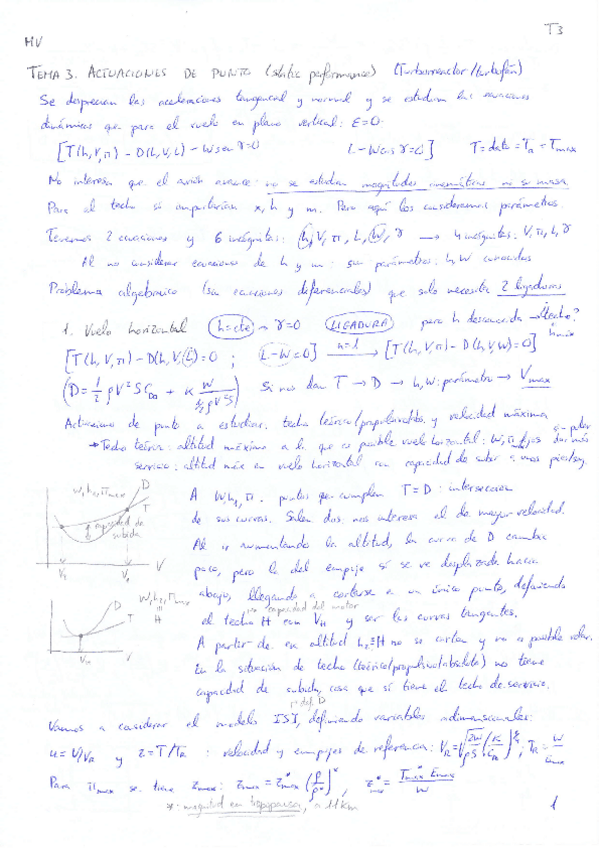 T3
MV
TEMA 3. ACTUACIONES DE PUNTO (static performance) (Turborreactor/turbofán)
Se desprecian las aceleraciones tangencial y normal y se estudian las ecuaciones
dinámicas que para el vuelo en plano vertical: ε=0:
[T(h,V,π) - D(h,V,L) - W sen γ=0 L - W cos γ=0] T=dato=Ta=Tmax
No interesa que el avión avance: no se estudian magnitudes cinemáticas ni su masa.
Para el techo sí x, h y m. Pero aquí los consideramos parámetros.
Tenemos 2 ecuaciones y 6 incógnitas: h, V, π, L, W, γ → 4 incógnitas: V, π, L, γ
Al no considerar ecuaciones de h y m: son parámetros: h, W conocidos
Problema algebraico (sin ecuaciones diferenciales) que solo necesita 2 ligaduras
1. Vuelo horizontal h=cte → γ=0 LIGADURA para h desconocida → ¿techo?
hmax
[T(h,V,π) - D(h,V,L)=0 ; L-W=0] n=1 → [T(h,V,π) - D(h,V,W)=0]
Si nos dan T → D → h, W: parámetro → Vmax
Actuaciones de punto a estudiar: techo teórico/propulsivo/abs. y velocidad máxima
* Techo teórico: altitud máxima a la que es posible vuelo horizontal: W, π fijos
servicio: altitud máx en vuelo horizontal con capacidad de subir a unos pies/seg.
W,h,πmax D T
capacidad de subida
V
A W,h,π. puntos que cumplen T=D: intersección
de sus curvas. Salen dos: nos interesa el de mayor velocidad.
Al ir aumentando la altitud, la curva de D cambia
poco, pero la del empuje sí se ve desplazada hacia
abajo, llegando a cortarse en un único punto, definiendo
no capacidad del motor
el techo H con VH y ser las curvas tangentes.
W,h,πmax
H
D T
VH V
A partir de esa altitud h₂≡H no se cortan y no es posible volar.
En la situación de techo (teórico/propulsivo/absoluto) no tiene
capacidad de subida, cosa que sí tiene el techo de servicio.
Vamos a considerar el modelo ISA, definiendo variables adimensionales:
u=V/VR y z=T/TR : velocidad y empujes de referencia:
Para πmax se tiene zmax: zmax = z*max (ρ/ρ*)ˣ , z*max = T*max Emax / W
*: magnitud en tropopausa, a 11km
1